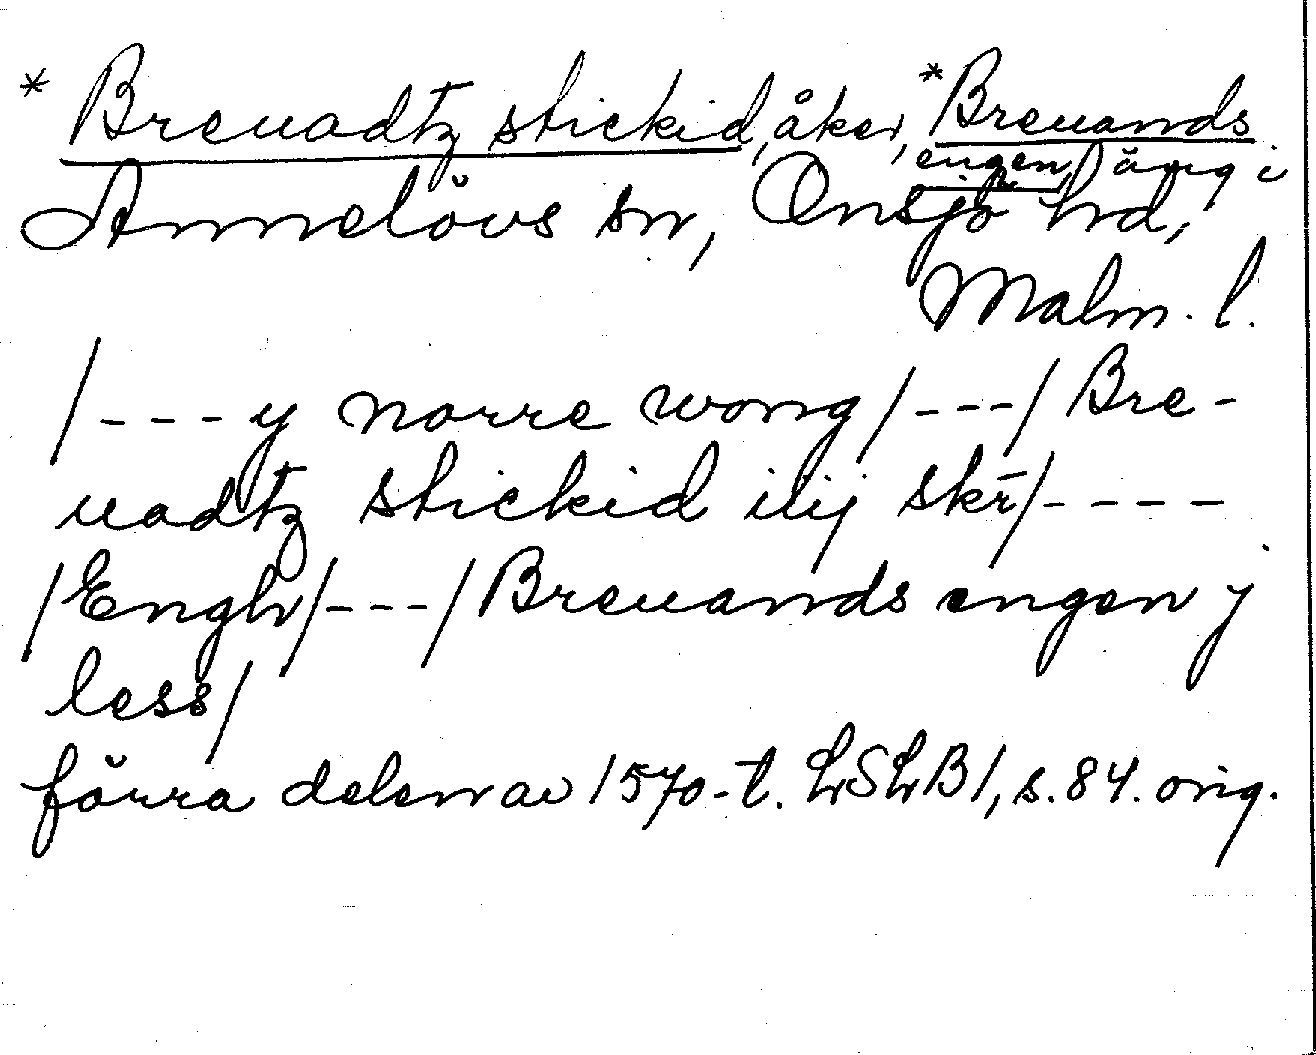 * Breuadtz stickid, åker, * Breuands
engen, äng i
Annelövs sn, Onsjö hd,
Malm. l.
/---y norre wong/---/Bre-
uadtz stickid iiij skr/----
/Engh/---/Breuands engen j
less/
förra delen av 1570-t. LSLB1, s. 84. orig.